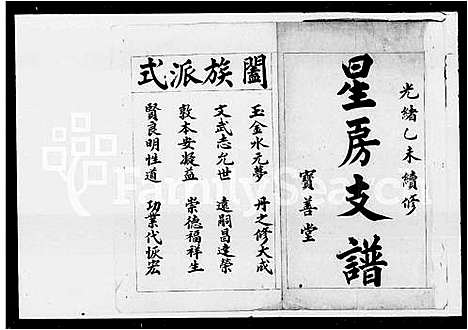 光緒乙未續修
星房支譜
寶善堂
闔族派式
玉金水元夢　丹之修大成
文武志允世　遠嗣昌達榮
敦本安凝益　崇德福祥生
賢良明性道　功業代恢宏
FamilySearch